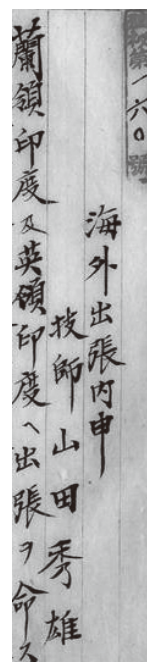 第一六〇號
海外出張内申
技師山田秀雄
蘭領印度及英領印度ヘ出張ヲ命ス